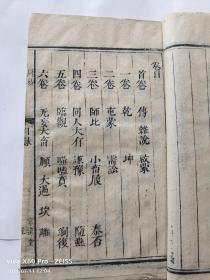 卷目
首卷 傳 雜說 啟蒙
一卷 乾 坤
二卷 屯蒙 需訟
三卷 師比 小畜履 泰否
四卷 同人大有 謙豫 隨蠱
五卷 臨觀 噬嗑賁 剝復
六卷 无妄大畜 頤 大過 坎 離
目錄